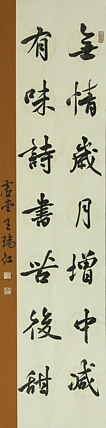 無情歲月增中減
有味詩書苦後甜
虛堂王瑞红